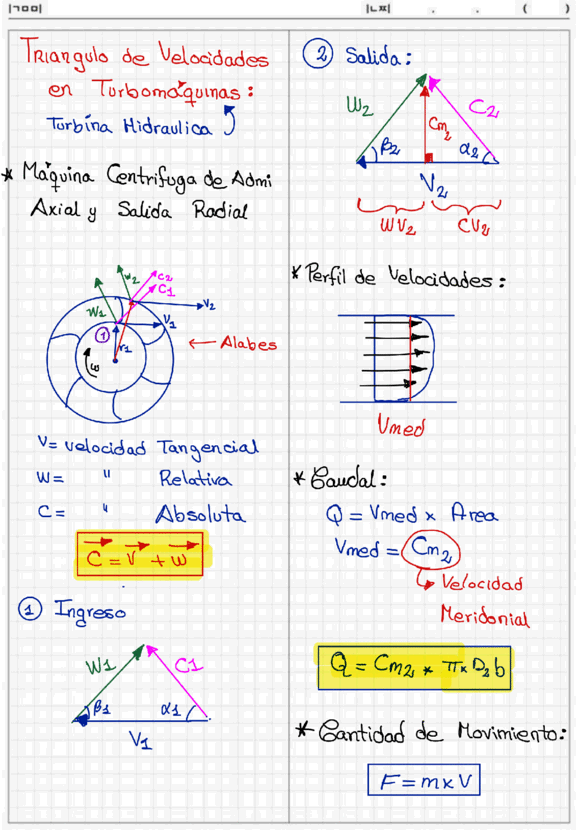 Triangulo de Velocidades
en Turbomáquinas:
Turbina Hidraulica
* Máquina Centrifuga de Admi
Axial y Salida Radial
W1
W2
C2
C1
V2
V1
1
r1
ω
Alabes
V= velocidad Tangencial
W= " Relativa
C= " Absoluta
C = V + W
① Ingreso
W1
C1
β1
α1
V1
② Salida:
W2
C2
Cm2
β2
α2
V2
WV2
CV2
* Perfil de Velocidades:
Vmed
* Caudal:
Q = Vmed x Area
Vmed = Cm2
Velocidad
Meridonial
Q = Cm2 * π x D2 b
* Cantidad de Movimiento:
F = m x V